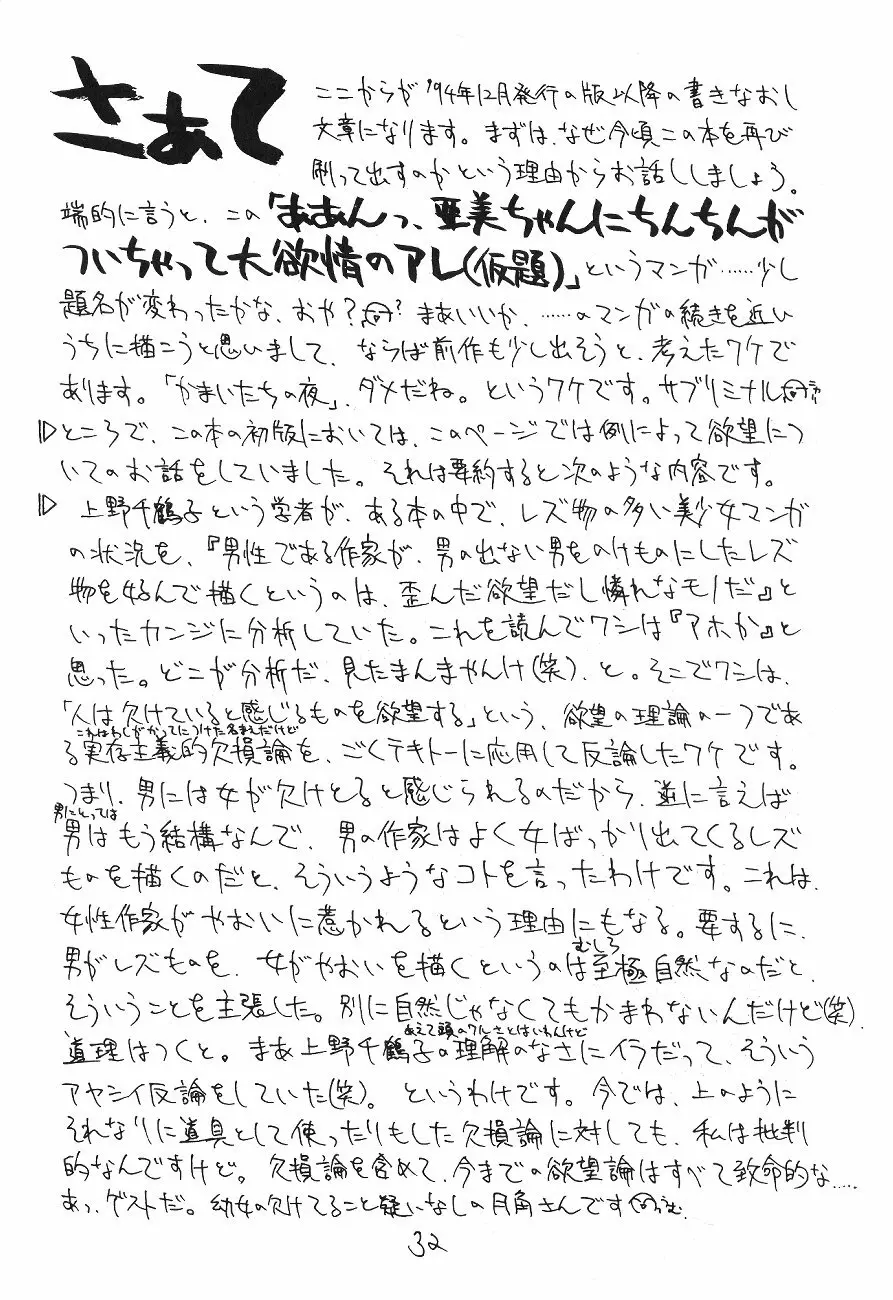 さあて
ここからが'94年12月発行の版以降の書きなおし
文章になります。まずは、なぜ今頃この本を再び
刷って出すのかという理由からお話ししましょう。
端的に言うと、この「ああんっ、亜美ちゃんにちんちんが
ついちゃって大欲情のアレ(仮題)」というマンガ……少し
題名が変わったかな、おや? ? まあいいか、……のマンガの続きを近い
うちに描こうと思いまして、ならば前作も少し出そうと、考えたワケで
あります。「かまいたちの夜」、ダメだね。というワケです。サブリミナル
ところで、この本の初版においては、このページでは例によって欲望につ
いてのお話をしていました。それは要約すると次のような内容です。
上野千鶴子という学者が、ある本の中で、レズ物の多い美少女マンガ
の状況を、『男性である作家が、男の出ない男をのけものにしたレズ
物を好んで描くというのは、歪んだ欲望だし憐れなモノだ』と
いったカンジに分析していた。これを読んでワシは『アホか』と
思った。どこが分析だ、見たまんまやんけ(笑)、と。そこでワシは、
「人は欠けていると感じるものを欲望する」という、欲望の理論の一つであ
これはわしがかってにつけた名まえだけど
る実存主義的欠損論を、ごくテキトーに応用して反論したワケです。
つまり、男には女が欠けとると感じられるのだから、逆に言えば
男にとっては
男はもう結構なんで、男の作家はよく女ばっかり出てくるレズ
ものを描くのだと、そういうようなコトを言ったわけです。これは、
女性作家がやおいに惹かれるという理由にもなる。要するに、
むしろ
男がレズものを、女がやおいを描くというのは至極自然なのだと、
そういうことを主張した。別に自然じゃなくてもかまわないんだけど(笑)、
あえて頭のワルさとはいわんけど
道理はつくと。まあ上野千鶴子の理解のなさにイラだって、そういう
アヤシイ反論をしていた(笑)。というわけです。今では、上のように
それなりに道具として使ったりもした欠損論に対しても、私は批判
的なんですけど。欠損論を含めて、今までの欲望論はすべて致命的な……
あっ、ゲストだ。幼女の欠けてること疑いなしの月角さんです
32